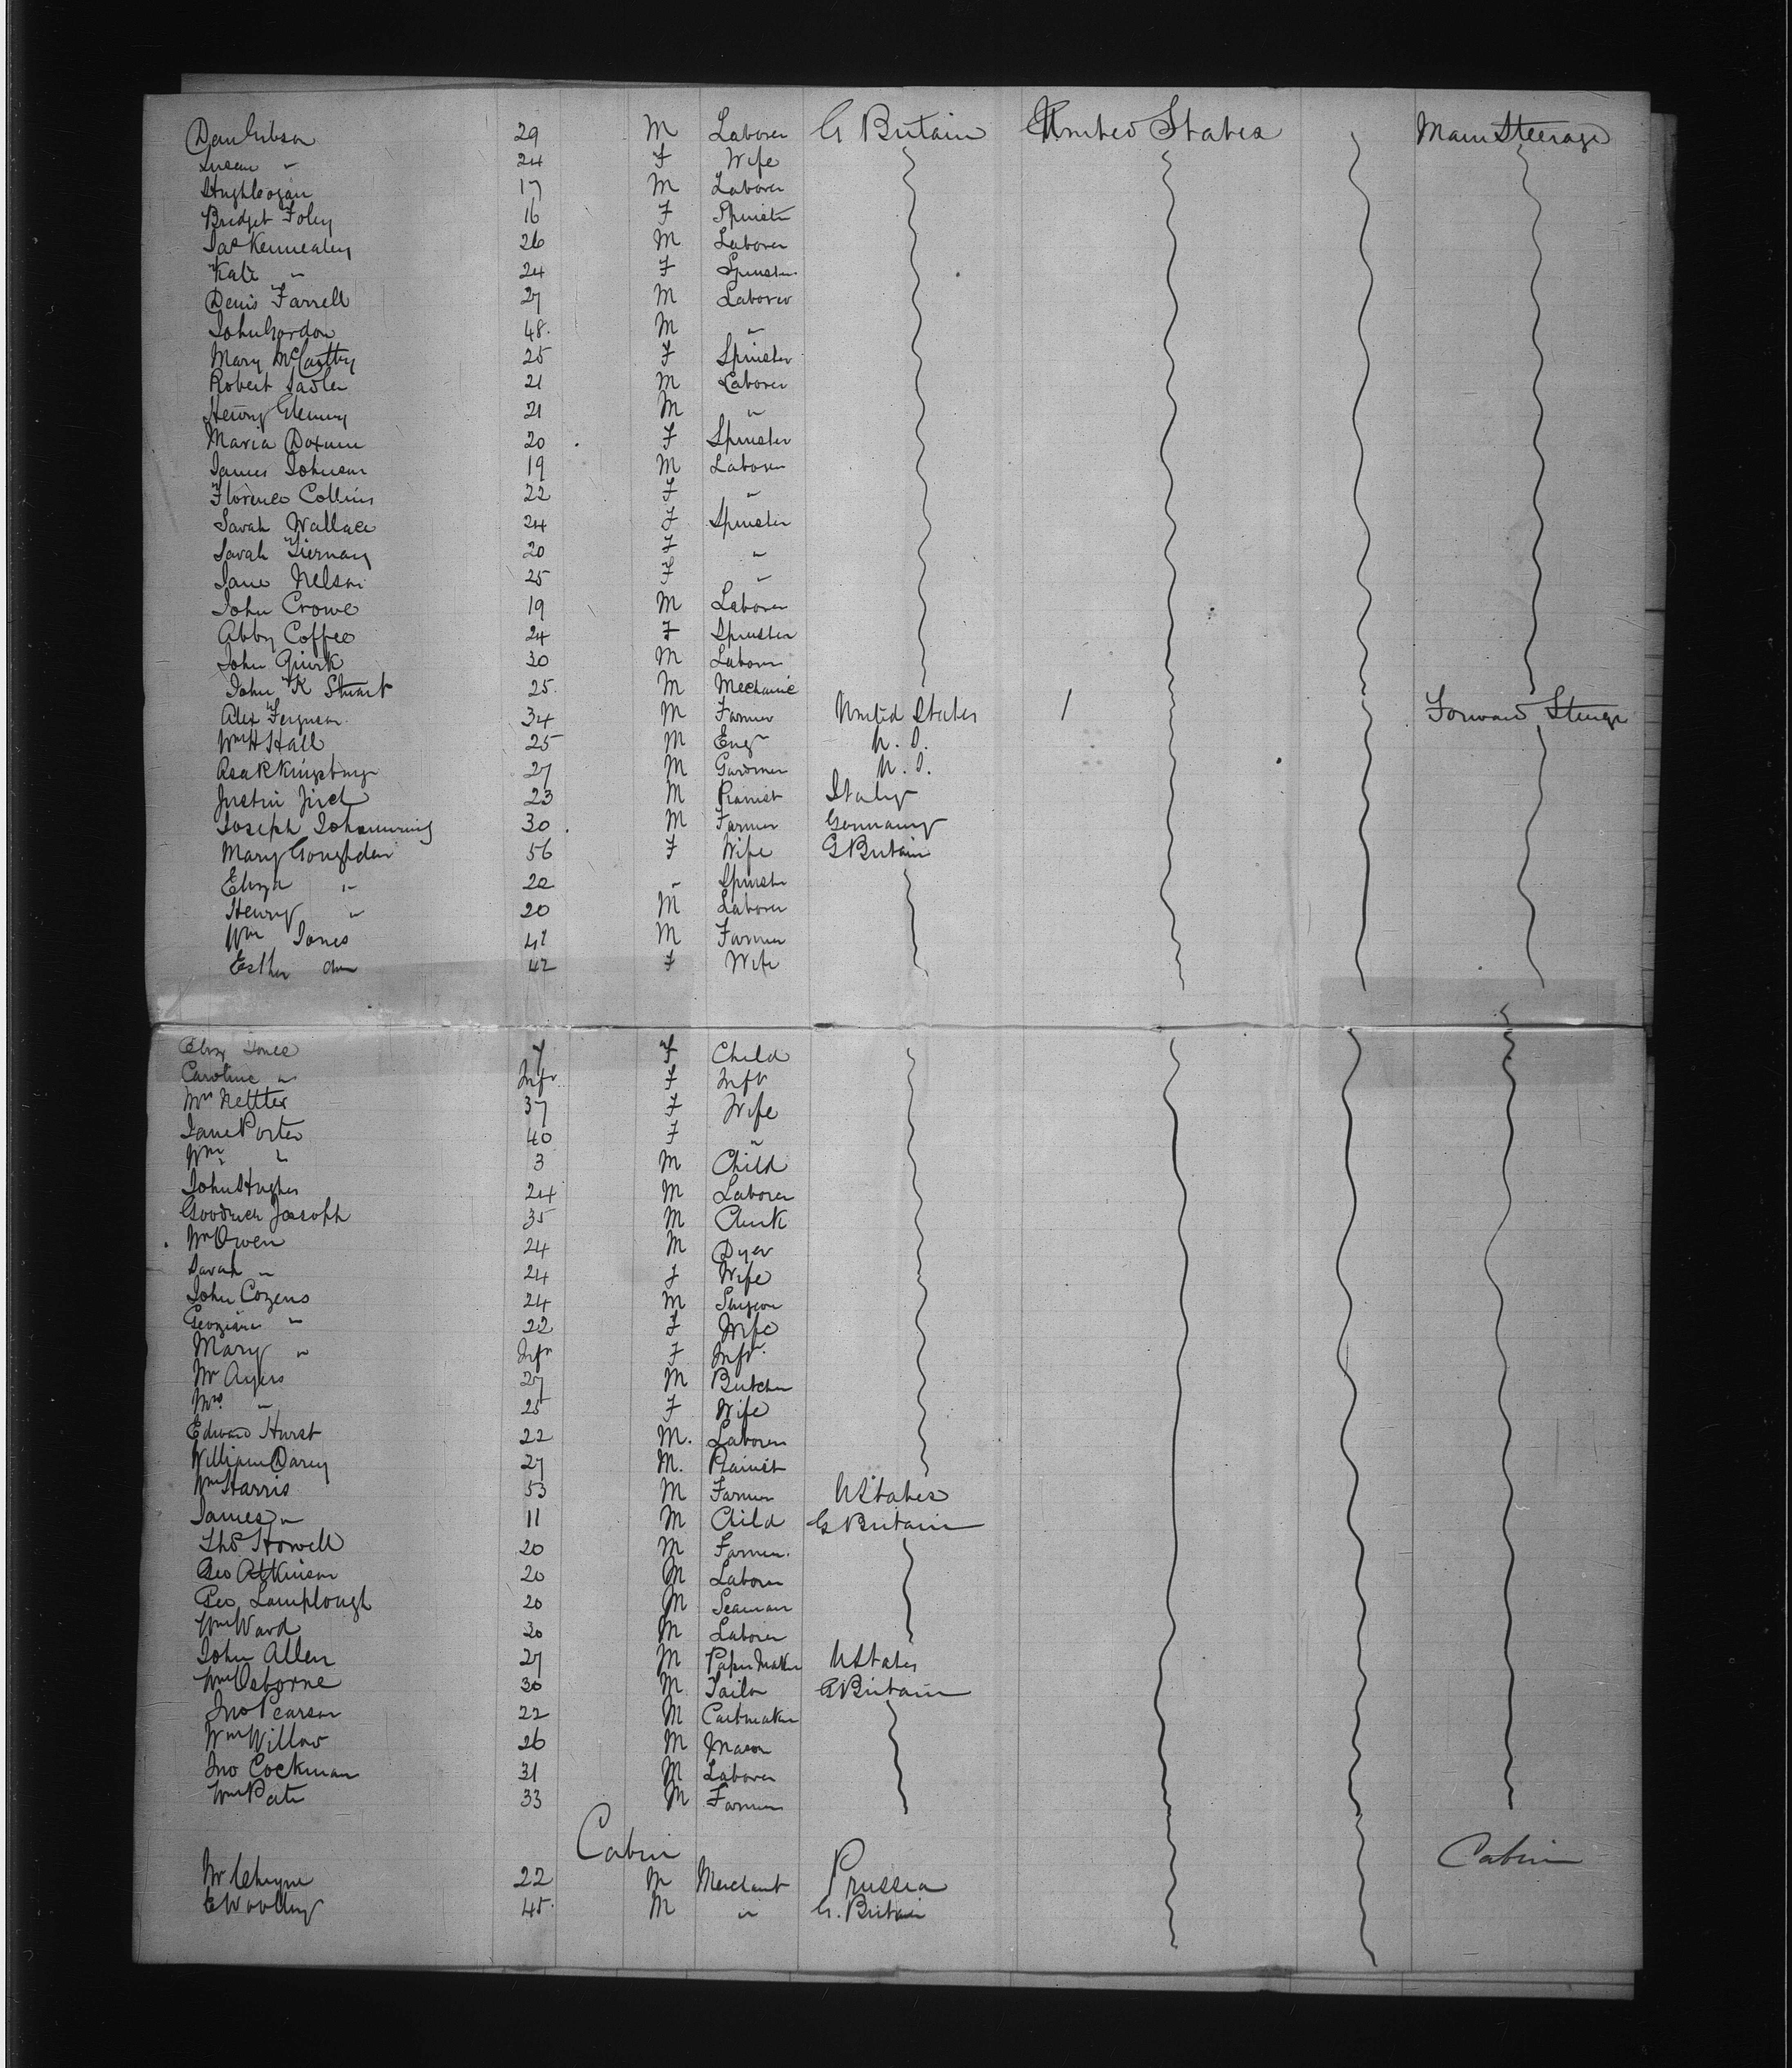 Dan Gibson 29 M Laborer G Britain United States Main Steerage
Susan " 24 F Wife
Hugh Cogan 17 M Laborer
Bridget Foley 16 F Spinster
Jas Kennealey 26 M Laborer
Kate " 24 F Spinster
Denis Farrell 27 M Laborer
John Gordon 48 M "
Mary McCarthy 25 F Spinster
Robert Sadler 21 M Laborer
Henry 21 M "
Maria 20 F Spinster
James Johnson 19 M Laborer
Florence Collins 22 F "
Sarah Wallace 24 F Spinster
Sarah Tiernay 20 F "
Jane Nelson 25 F "
John Crowe 19 M Laborer
Abby Coffee 24 F Spinster
John Quirk 30 M Laborer
John K Stuart 25 M Mechanic
Alex Ferguson 34 M Farmer United States / Forward Steerage
Wm H Hall 25 M Engr U. S.
Asa R Kingsbury 27 M Gardner U. S.
Justin 23 M Pianist Italy
Joseph 30 M Farmer Germany
Mary 56 F Wife G Britain
Eliza " 22 " Spinster
Henry " 20 M Laborer
Wm Jones 42 M Farmer
Esther do 42 F Wife
Eliza Jones 7 F Child
Caroline " Inft F Inft
Mrs Nettter 37 F Wife
Jane Porter 40 F "
Wm " 3 M Child
John Hughes 24 M Laborer
Goodrich Joesoph 35 M Clerk
Wm Owen 24 M Dyer
Sarah " 24 F Wife
John Cozens 24 M Surgeon
Georgiana " 22 F Wife
Mary " Inft F Inft
Mr Ayers 27 M Butcher
Mrs " 25 F Wife
Edward Hurst 22 M. Laborer
William Darcy 27 M. Pianist
Wm Harris 53 M Farmer U States
James " 11 M Child G Britain
Thos Howell 20 M Farmer
Geo Atkinson 20 M Laborer
Geo Lamplough 20 M Seaman
Wm Ward 30 M Laborer
John Allen 27 M Paper Maker U States
Wm Osborne 30 M Tailor G Britain
Jno Pearson 22 M Cartmaker
Wm Willow 26 M Mason
Jno Cockman 31 M Laborer
Wm Pate 33 M Farmer
Cabin Cabin
Mr Cheyne 22 M Merchant Prussia
E 45 M " G. Britain